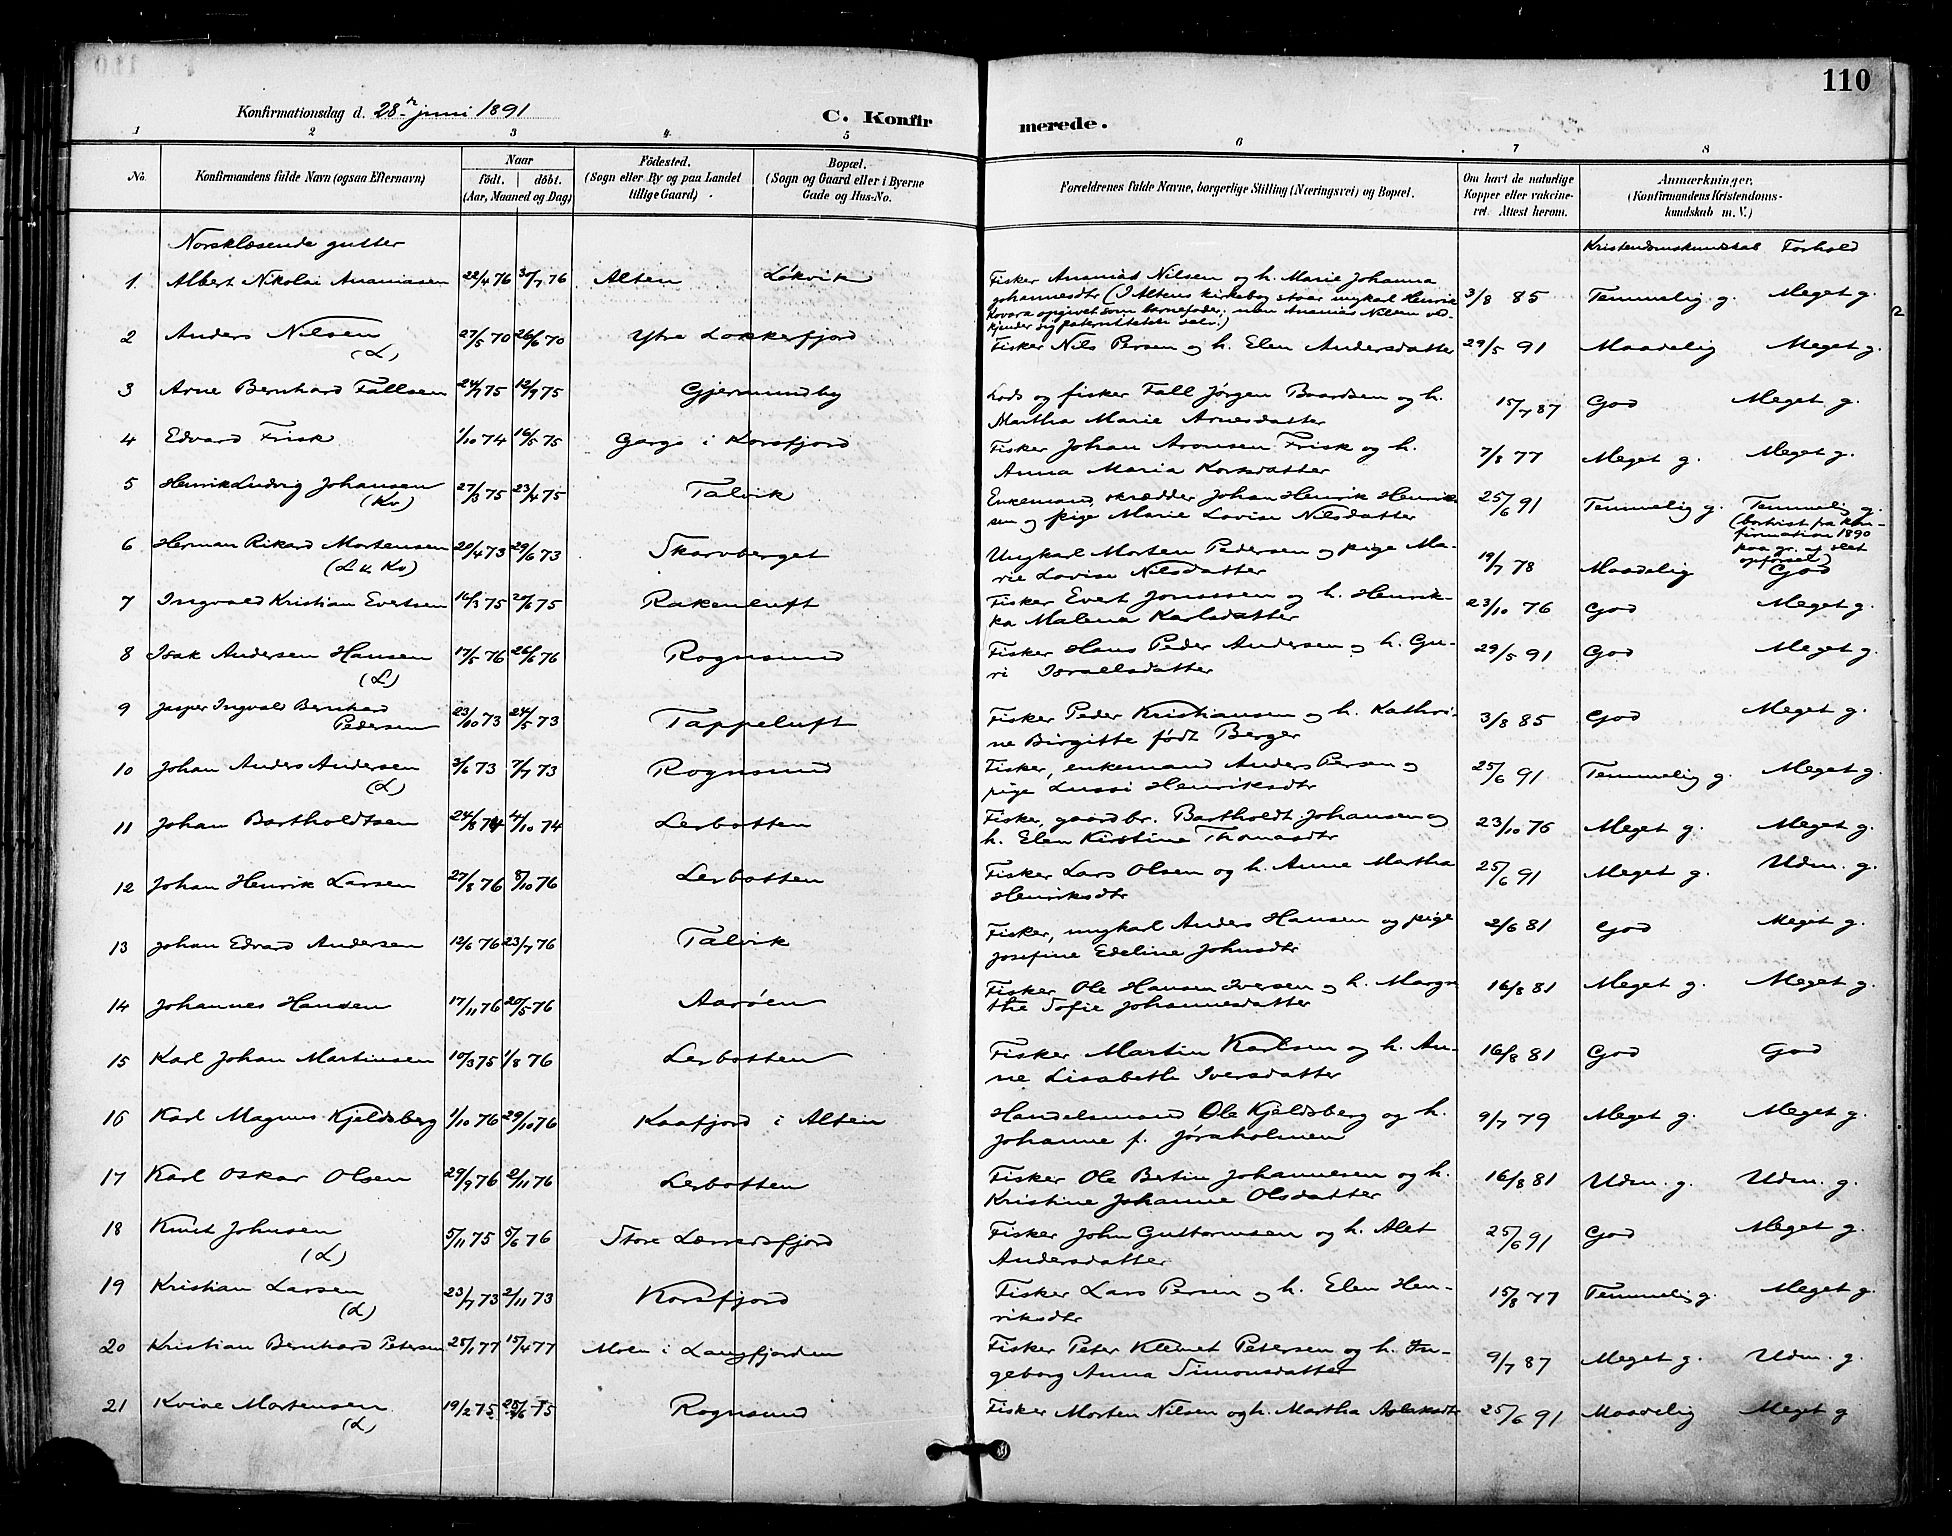 110
Konfirmationsdag d. 28de juni 1891
C. Konfirmerede.
1 2 3 4 5 6 7 8
No. Konfirmandens fulde Navn (ogsaa Efternavn) Naar födt. döbt. (Aar, Maaned og Dag) Födested. (Sogn eller By og paa Landet tillige Gaard) Bopæl. (Sogn og Gaard eller i Byerne Gade og Hus-No. Forældrenes fulde Navne, borgerlige Stilling (Næringsvei) og Bopæl. Om havt de naturlige Kopper eller vakcineret. Attest herom. Anmærkninger, (Konfirmandens Kristendomskundskab m. V.)
Norsklæsende gutter Kristendomskundskab Forhold
1 Albert Nikolai Ananiasen 22/4 76 30/7 76 Alten Lökvik Fisker Ananias Nilsen og h. Marie Johanna
Johannesdtr (I Altens kirkebog staar ungkarl Henrik 3/8 85 Temmelig g. Meget g.
Kovara opgivet som barnefader; men Ananias Nilsen vedkjender sig paterniteten selv.)
2 Anders Nilsen (L) 27/5 70 26/6 70 Ytre Lokkerfjord Fisker Nils Persen og h. Elen Andersdatter 29/5 91 Maadelig Meget g.
3 Arne Bernhard Fallsen 24/7 75 12/9 75 Gjermundby Lods og fisker Fall Jørgen Baardsen og h.
Martha Marie Arnesdatter 15/7 87 God Meget g.
4 Edvard Frisk 1/10 74 16/5 75 Gargo i Korsfjord Fisker Johan Aronsen Frisk og h.
Anna Maria Korsdatter 7/8 77 Meget g. Meget g.
5 Henrik Ludvig Johansen (Kv) 27/3 75 23/4 75 Talvik Enkemand, skrædder Johan Henrik Henriksen og pige Marie Lovise Nilsdatter 25/6 91 Temmelig g. Temmelig g.
(bortvist fra konfirmation 1890
paa gr. af slet
opførsel)
6 Herman Rikard Mortensen (L k Kv) 20/4 73 29/6 73 Skarvberget Ungkarl Morten Pedersen og pige Marie Lovise Nilsdatter 19/7 78 Maadelig God
7 Ingvald Kristian Evertsen 16/3 75 20/6 75 Rakenluft Fisker Evert Jonssen og h. Henrikka Malena Karlsdatter 23/10 76 God Meget g.
8 Isak Andersen Hansen (L) 17/5 76 26/6 76 Rognsund Fisker Hans Peder Andersen og h. Guri Israelsdatter 29/5 91 God Meget g.
9 Jasper Ingvald Bernhard Pedersen 23/10 73 24/5 73 Tappeluft Fisker Peder Kristiansen og h. Kathrine Birgitte født Berger 3/8 85 God Meget g.
10 Johan Anders Andersen (L) 3/6 73 7/7 73 Rognsund Fisker, enkemand Anders Persen og
pige Lussi Henriksdtr 25/6 91 Temmelig g. Meget g.
11 Johan Bartholdtsen 24/8 74 4/10 74 Lerbotten Fisker, gaardbr. Bartholdt Johansen og
h. Elen Kirstine Thomasdtr 23/10 76 Meget g. Meget g.
12 Johan Henrik Larsen 27/8 76 8/10 76 Lerbotten Fisker Lars Olsen og h. Anne Martha
Henriksdtr 25/6 91 Meget g. Udm. g.
13 Johan Edvard Andersen 12/6 76 23/7 76 Talvik Fisker, ungkarl Anders Hansen og pige
Josefine Edeline Johnsdtr 2/6 81 God Meget g.
14 Johannes Hansen 17/11 76 20/5 76 Aaröen Fisker Ole Hansen Iversen og h. Margrethe Sofie Johannesdatter 16/8 81 Meget g. Meget g.
15 Karl Johan Martinsen 10/3 75 1/8 76 Lerbotten Fisker Martin Karlsen og h. Anne Lisabeth Iversdatter 16/8 81 God God
16 Karl Magnus Kjeldsberg 1/10 76 29/10 76 Kaafjord i Alten Handelsmand Ole Kjeldsberg og h.
Johanne f. Jöraholmen 9/7 79 Meget g. Meget g.
17 Karl Oskar Olsen 29/9 76 2/11 76 Lerbotten Fisker Ole Bertin Johannesen og h.
Kristine Johanne Olsdatter 16/8 81 Udm. g. Udm. g.
18 Knut Johnsen (L) 5/11 75 5/6 76 Store Lerredsfjord Fisker John Guttormsen og h. Alet
Andersdatter 25/6 91 God Meget g.
19 Kristian Larsen (L) 23/7 73 2/11 73 Korsfjord Fisker Lars Persen og h. Elen Henriksdtr 15/8 77 Temmelig g. Meget g.
20 Kristian Bernhard Petersen 25/1 77 15/4 77 Moen i Langfjorden Fisker Peter Klemet Petersen og h. Ingeborg Anna Simonsdatter 9/7 87 Meget g. Udm. g.
21 Kvive Mortensen (L) 19/2 75 25/6 75 Rognsund Fisker Morten Nilsen og h. Martha Aslaksdtr 25/6 91 Maadelig Meget g